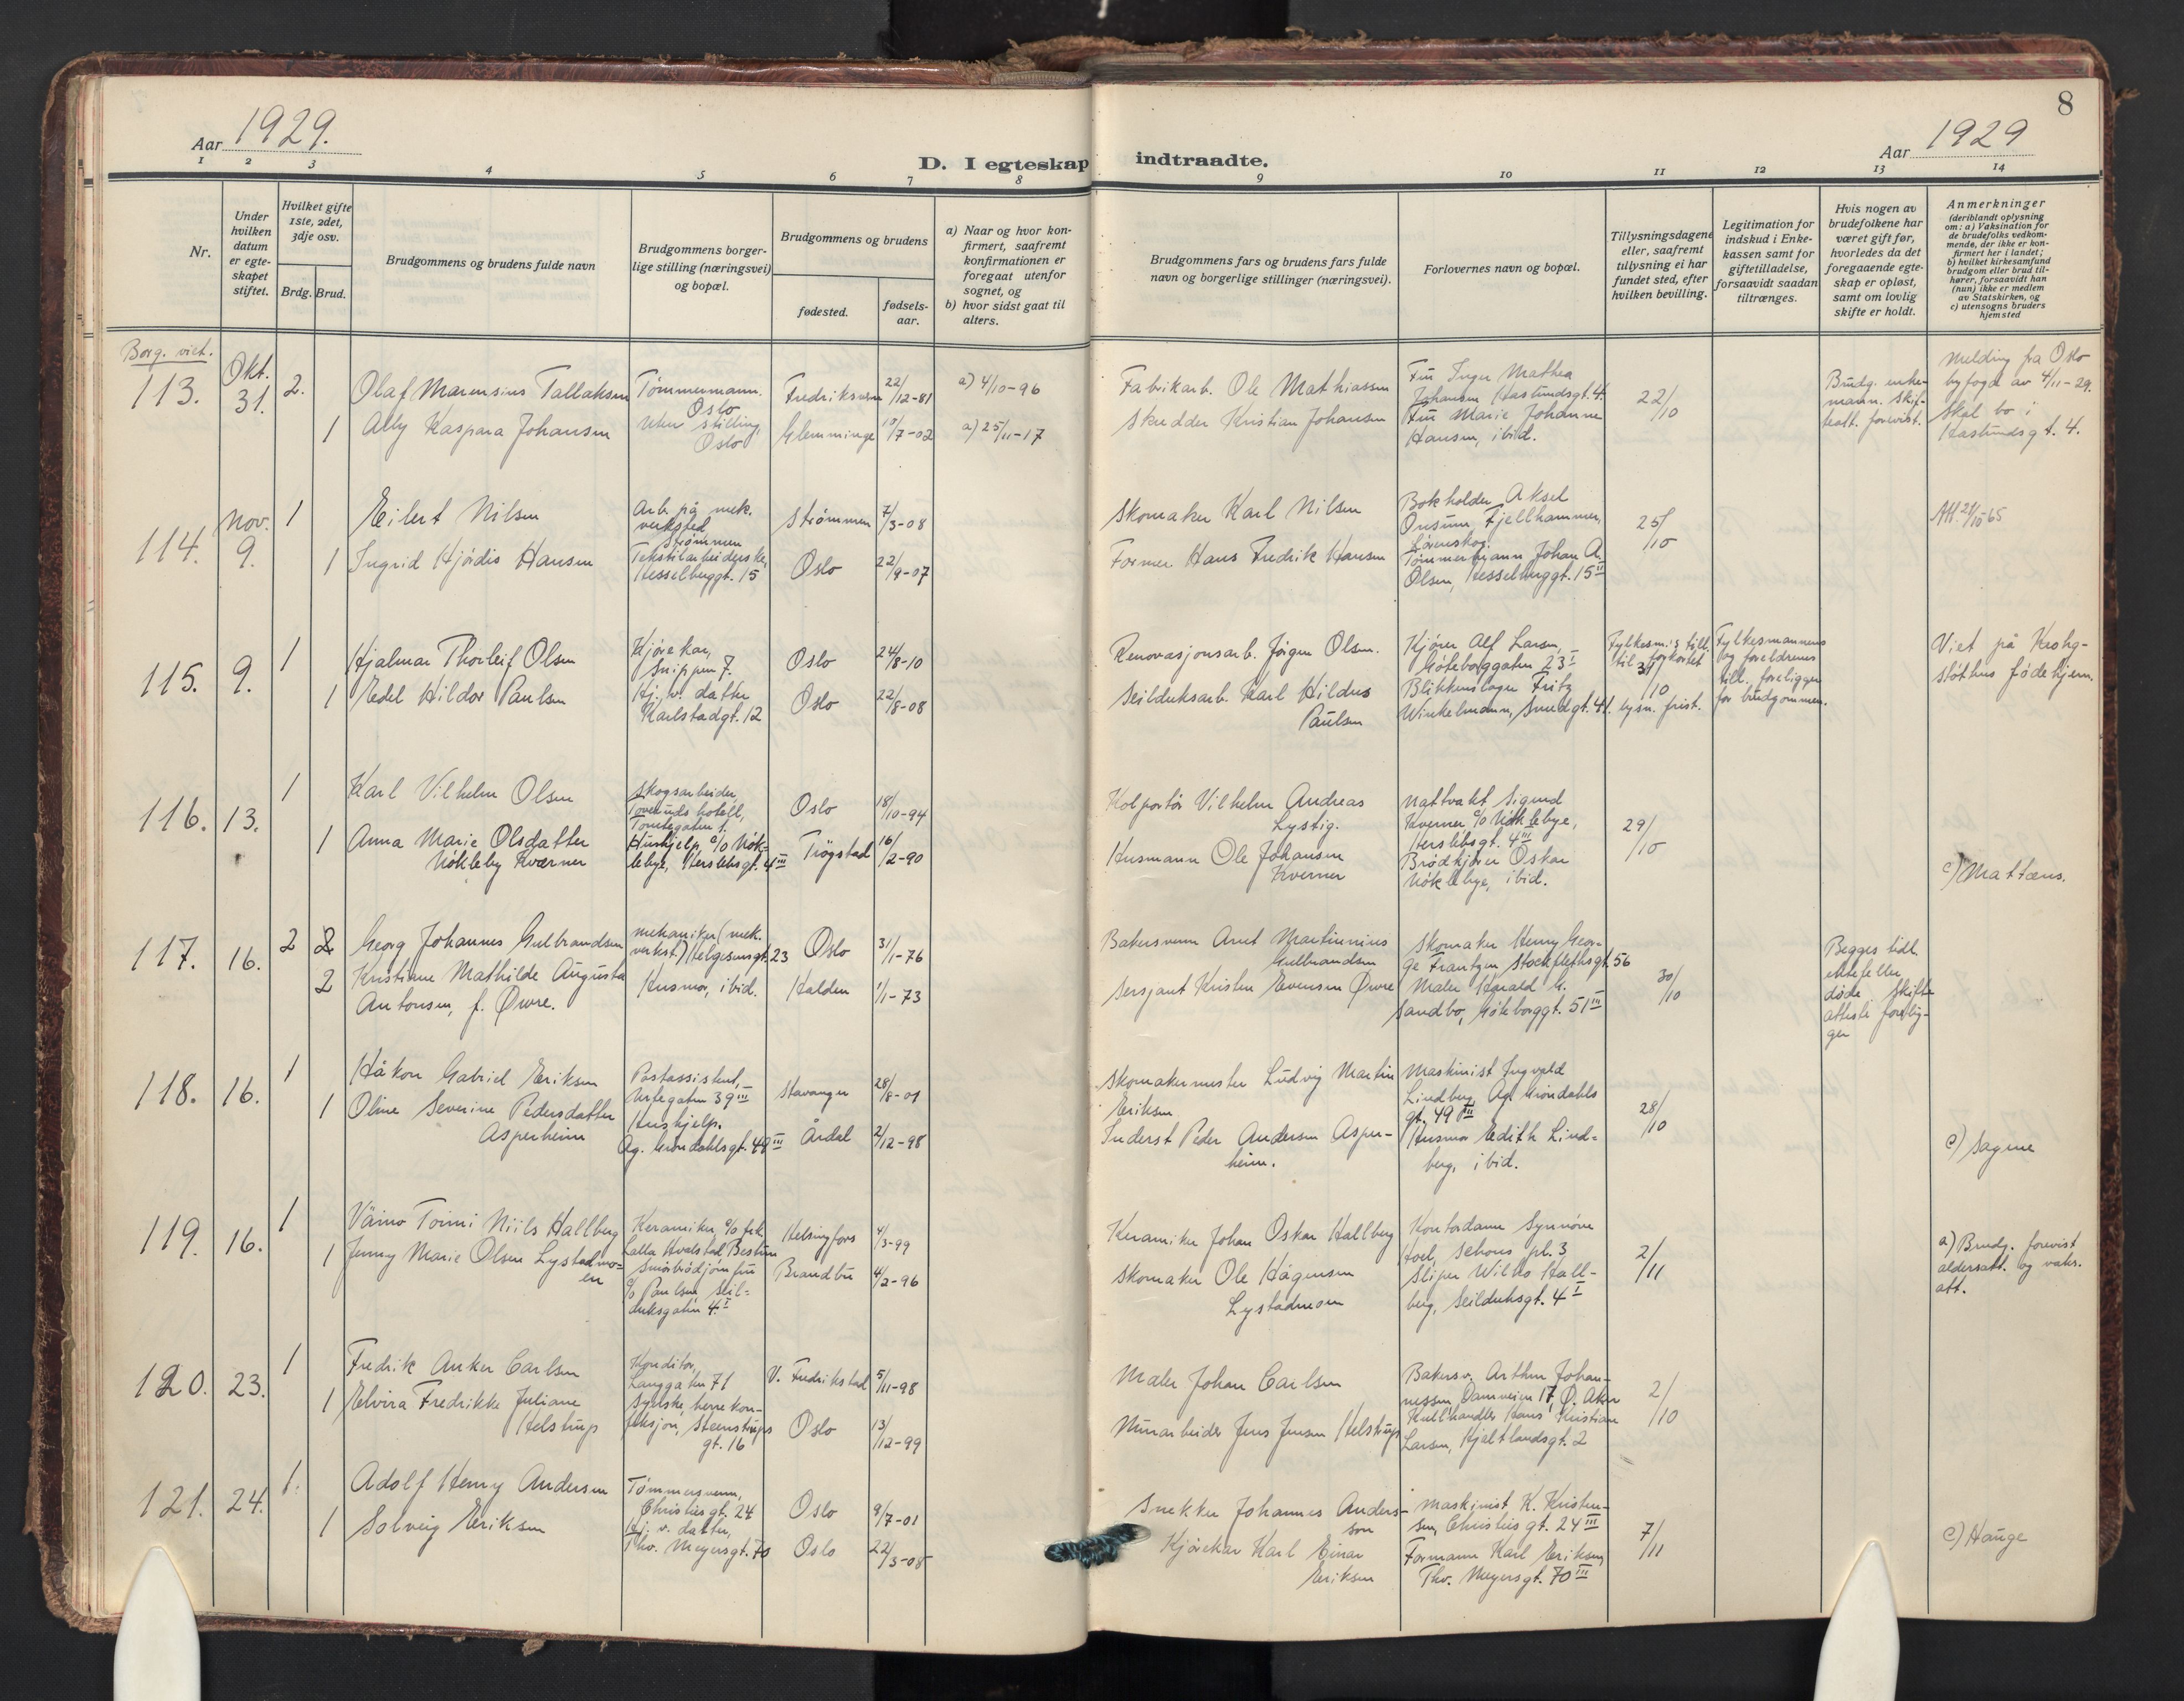 8
Aar 1929.
Aar 1929
D. I egteskap indtraadte.
1 2 3 4 5 6 7 8 9 10 11 12 13 14
Nr.
Under hvilken datum er egte-skapet stiftet.
Hvilket gifte 1ste, 2det, 3dje osv.
Brdg. Brud.
Brudgommens og brudens fulde navn
Brudgommens borger-lige stilling (næringsvei) og bopæl.
Brudgommens og brudens
fødested.
fødsels-aar.
a) Naar og hvor kon-firmert, saafremt konfirmationen er foregaat utenfor sognet, og
b) hvor sidst gaat til alters.
Brudgommens fars og brudens fars fulde navn og borgerlige stillinger (næringsvei).
Forlovernes navn og bopæl.
Tillysningsdagene eller, saafremt tillysning ei har fundet sted, efter hvilken bevilling.
Legitimation for indskud i Enke-kassen samt for giftetilladelse, forsaavidt saadan tiltrænges.
Hvis nogen av brudefolkene har været gift før, hvorledes da det foregaaende egte-skap er opløst, samt om lovlig skifte er holdt.
Anmerkninger
(deriblandt oplysning om: a) Vaksination for de brudefolks vedkom-mende, der ikke er kon-firmert her i landet; b) hvilket kirkesamfund brudgom eller brud til-hører, forsaavidt han (hun) ikke er medlem av Statskirken, og c) utensogns bruders hjemsted
Borg. viet.
113. Okt. 31. 2. Olaf Marensius Tallaksen
Tømmermann. Oslo
Fredriksværn 22/12-81
a) 4/10-96
Fabrikarb. Ole Mathiassen
Fru Inger Mathea Johansen Hastundsgt. 4.
22/10
Brudg. enke-mann. Skif-teatt. forevist.
Melding fra Oslo byfogd av 4/11-29. Skal bo i Hastundsgt. 4.
1 Ally Kaspara Johansen
Uten stilling, Oslo
Glemminge 10/7-02
a) 25/11-17
Skredder Kristian Johansen
Fru Marie Johanne Hansen, ibid.
114. Nov. 9. 1 Eilert Nilsen
Arb. på mek. verksted Strømmen
Strømmen 7/3-08
Skomaker Karl Nilsen
Bokholder Aksel Onsum, Fjellhammer, Lørenskog.
25/10
1 Ingrid Hjørdis Hansen
Tekstilarbeiderske, Hesselberggt. 15
Oslo 22/9-07
Former Hans Fredrik Hansen
Tømmermann Johan A. Olsen, Hesselberggt. 15 II
115. 9. 1 Hjalmar Thorleif Olsen
Kjørekar, Snippen 7.
Oslo 24/8-10
Renovasjonsarb. Jørgen Olsen.
Kjører Alf Larsen, Göteborggaten 23 I
Fylkesm.'s till. til forkortet 31/10 lysn. frist.
Fylkesmannens og foreldrenes till. foreligger for brudgommen.
Viet på Krohg-støtens fødehjem.
1 Edel Hildor Paulsen
Hj. v. datter Karlstadgt. 12
Oslo 22/8-08
Seilduksarb. Karl Hildus Paulsen
Blikkenslager Fritz Winkelmann, Smedgt. 41.
116. 13. 1 Karl Vilhelm Olsen
Skogsarbeider, Toveruds hotell, Tomtegaten 1.
Oslo 18/10-94
Kolportør Vilhelm Andreas Lystig.
Nattvakt Sigurd Kverner c/o Nøklebye, Herslebsgt. 4 III
29/10
1 Anna Marie Olsdatter Nøkleby Kværner
Hushjelp, c/o Nøk-lebye, Herslebsgt. 4 III
Trøgstad 16/2-90
Husmann Ole Johansen Kverner
Brødkjører Oskar Nøklebye, ibid.
c) Mattæus.
117. 16. 2 2 Georg Johannes Gulbrandsen
Mekaniker (mek. verkst.) Helgesensgt. 23
Oslo 31/1-76
Bakersvenn Arnt Martinnius Gulbrandsen
Skomaker Henry Geor-ge Frantzen Stockflethsgt. 56
30/10
Begges tidl. ektefeller døde. Skifte atteste forelig-ger
2 Kristiane Mathilde Augusta Antonsen, f. Øwre.
Husmor, ibid.
Halden 1/1-73
Sersjant Kristen Evensen Øwre
Maler Harald G. Sandbo, Göteborggt. 51 III
118. 16. 1 Håkon Gabriel Eriksen
Postassistent, Urtegaten 39 III
Stavanger 28/8-01
Skomakermester Ludvig Martin Eriksen
Maskinist Ingvald Lindberg Ag. Grøndahls gt. 49 III
28/10
1 Oline Severine Pedersdatter Asperheim
Hushjelp. Ag. Grøndahlsgt. 49 III
Årdal 2/12-98
Inderst Peder Andersen Asper-heim.
Husmor Edith Lind-berg, ibid.
c) Sagene
119. 16. 1 Väino Toimi Niils Hallberg
Keramiker, c/o frk. Lalla Hvalstad Bestum
Helsingfors 4/3-99
Keramiker Johan Oskar Hallberg
Kontordame Synnøve Hoel, Schous pl. 3
2/11
a) Brudg. forevist aldersatt. og vaks. att.
1 Jenny Marie Olsen Lystadmo-en
Smørbrødjomfru c/o Paulsen Seil-duksgaten 4 I
Brandbu 4/2-96
Skomaker Ole Hågensen Lystadmoen
Sliper Wilho Hall-berg, Seilduksgt. 4 I
120. 23. 1 Fredrik Anker Carlsen
Konditor, Langgaten 71
V. Fredrikstad 5/11-98
Maler Johan Carlsen
Bakersv. Arthur Johan-nessen, Damveien 17, Ø. Aker
2/10
1 Elvira Fredrikke Juliane Helstrup
Syerske, herrekon-feksjon, Steenstrups gt. 16
Oslo 13/12-99
Murarbeider Jens Jensen Helstrup
Kullhandler Hans Kristian Larsen, Hjaltlandsgt. 2
121. 24. 1. Adolf Henry Andersen
Tømmersvenn, Christies gt. 24
Oslo 9/7-01
Snekker Johannes Anders-son
Maskinist K. Kristen-sen, Christies gt. 24 III
7/11
1 Solveig Eriksen
Hj. v. datter, Thv. Meyersgt. 70
Oslo 22/3-08
Kjørekar Karl Einar Eriksen
Formann Karl Eriksen, Thv. Meyersgt. 70 III
c) Hauge